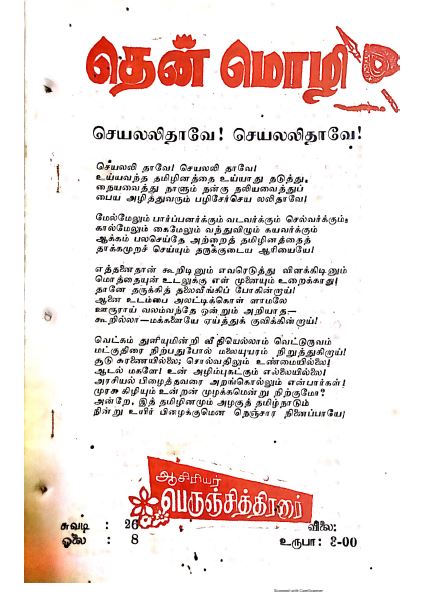 தென் மொழி
செயலலிதாவே! செயலலிதாவே!
செயலலி தாவே! செயலலி தாவே!
உய்யவந்த தமிழினத்தை உய்யாது தடுத்து,
நையவைத்து நாளும் நன்கு நலியவைத்துப்
பைய அழித்துவரும் பழிசேர்செய லலிதாவே!
மேல்மேலும் பார்ப்பனர்க்கும் வடவர்க்கும் செல்வர்க்கும்;
கால்மேலும் கைமேலும் வந்துவிழும் கயவர்க்கும்
ஆக்கம் பலசெய்தே அற்றைத் தமிழினத்தைத்
தாக்கமுறச் செய்யும் தருக்குடைய ஆரியையே!
எத்தனைதான் கூறிடினும் எவரெடுத்து விளக்கிடினும்
மொத்தையுன் உடலுக்கு எள் முனையும் உறைக்காது!
தானே தருக்கித் தலைவீங்கிப் போகின்றாய்!
ஆனை உடம்பை அலட்டிக்கொள் ளாமலே
ஊரூராய் வலம்வந்தே ஒன்றும் அறியாத—
கூறில்லா—மக்களையே ஏய்த்துக் குவிக்கின்றாய்!
வெட்கம் துளியுமின்றி வீதியெல்லாம் வெட்டுருவம்
மட்குதிரை நிற்பதுபோல் மலையுயரம் நிறுத்துகிறாய்!
சூடு சுரணையில்லை; சொல்வதிலும் உண்மையில்லை!
ஆடல் மகளே! உன் அழிம்புகட்கும் எல்லையில்லை!
அரசியல் பிழைத்தவரை அறங்கொல்லும் என்பார்கள்!
முரசு கிழியும் உன்றன் முழக்கமென்று நிற்குமோ?
அன்றே, இத் தமிழினமும் அழகுத் தமிழ்நாடும்
நின்று உயிர் பிழைக்குமென நெஞ்சார நினைப்பாயே!
ஆசிரியர்
பெருஞ்சித்திரனார்
சுவடி : 26 விலை:
ஓலை : 8 உருபா: 2-00
Scanned with CamScanner